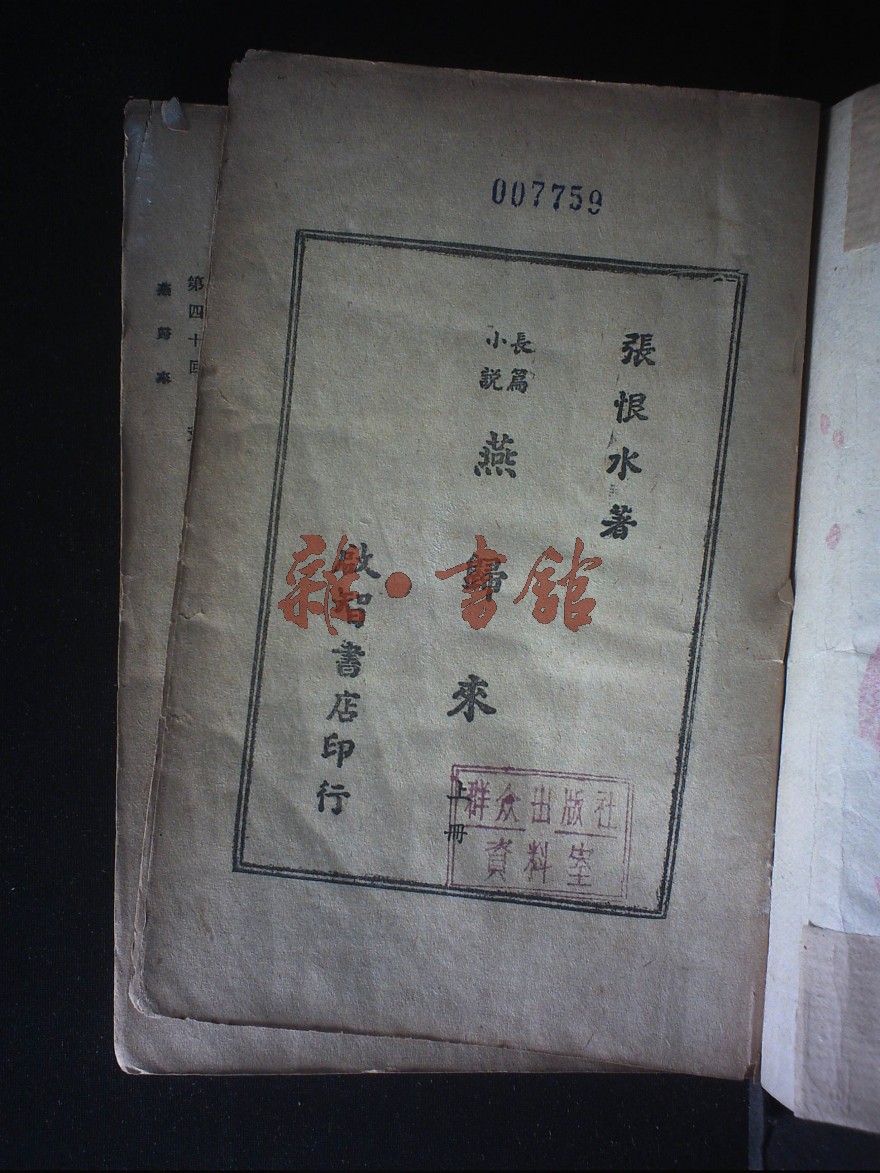 007759
張恨水著
長篇
小説
燕歸來
上冊
啟智書店印行
群众出版社
資料室
雜·書館
第四十回
燕歸來